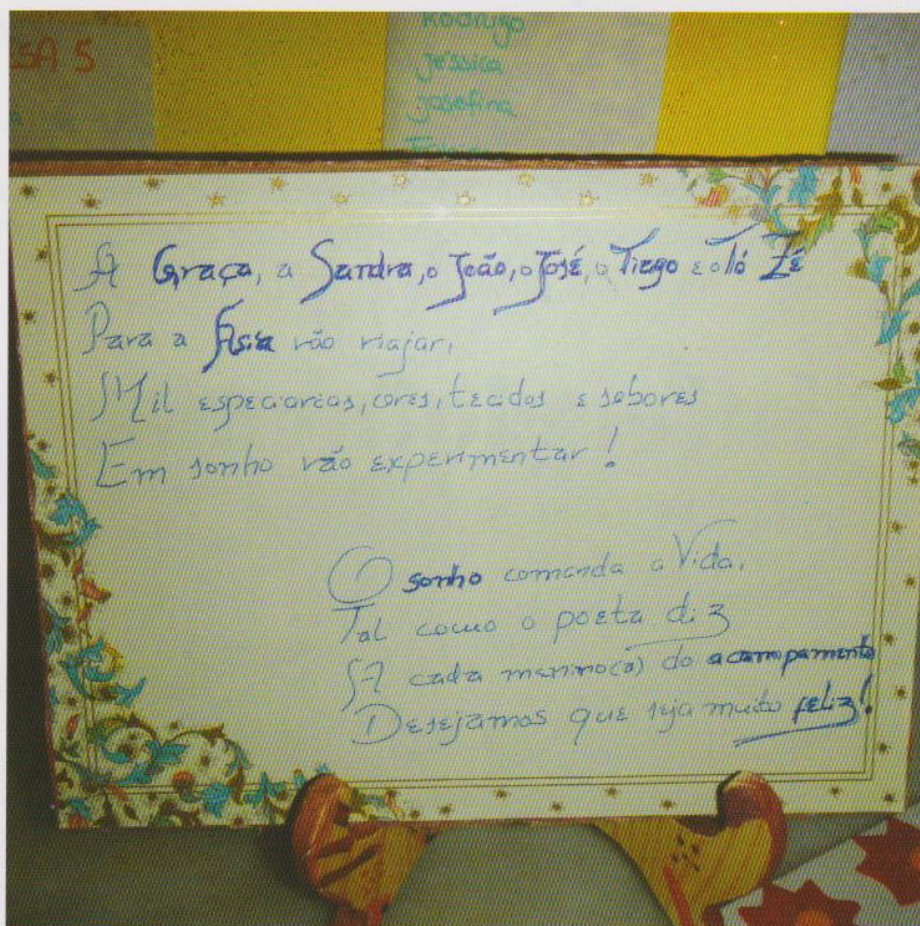 SA 5
Rodrigo
Jessica
Josefina
A Graça, a Sandra, o João, o José, o Tiago e o Tó Zé
Para a Ásia vão viajar,
Mil especiarias, cores, tecidos e sabores
Em sonho vão experimentar!
O sonho comanda a Vida,
Tal como o poeta diz
A cada menino(a) do acampamento
Desejamos que seja muito feliz!